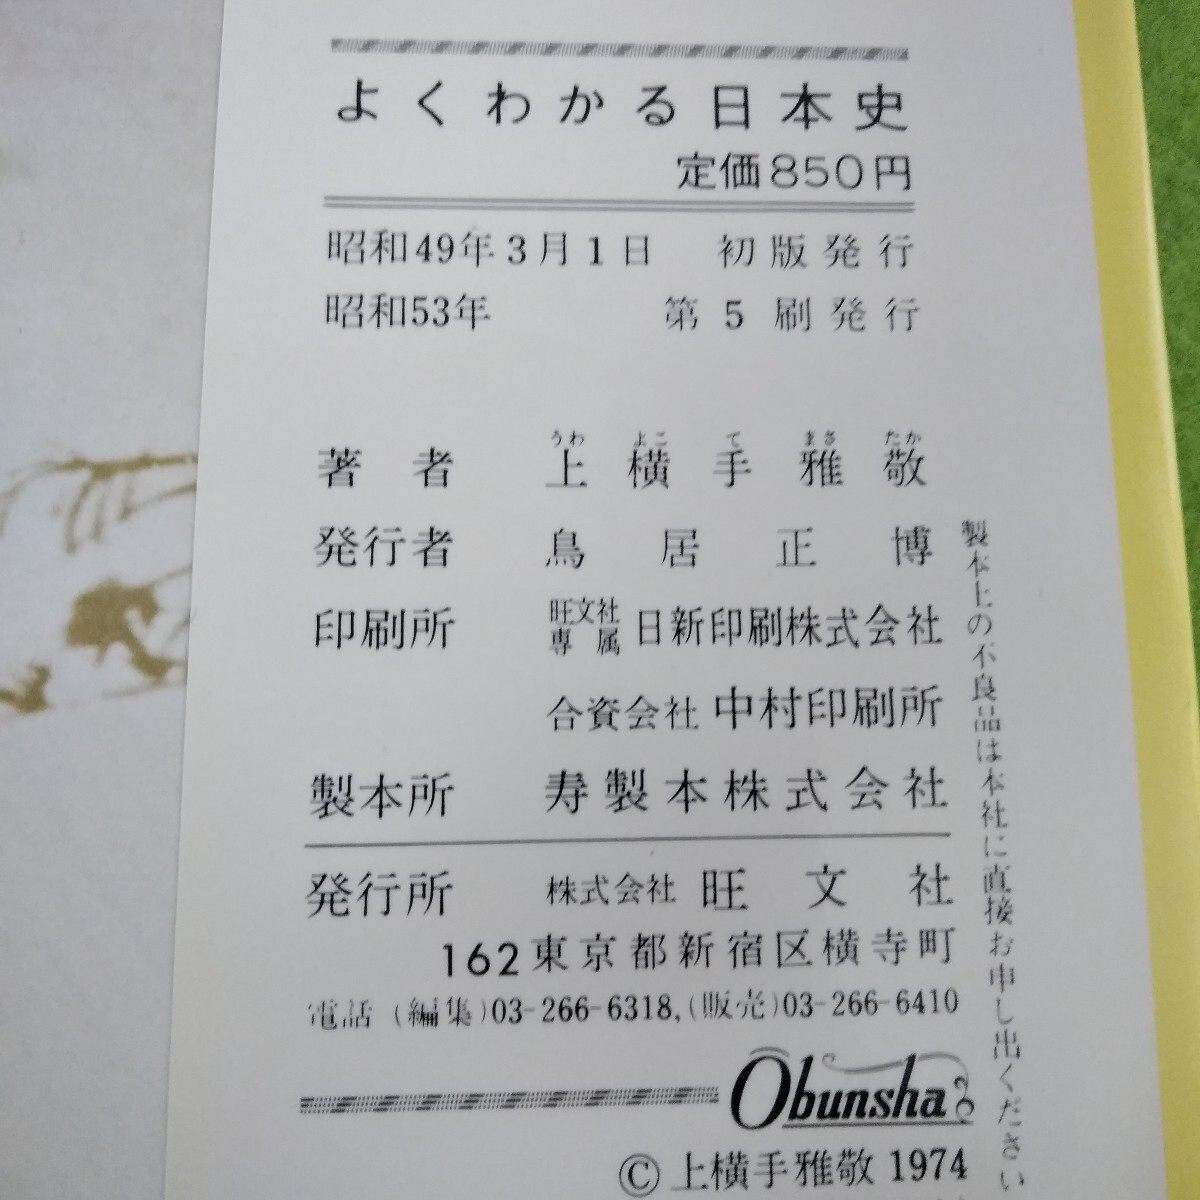 よくわかる日本史
定価850円
昭和49年3月1日 初版発行
昭和53年 第5刷発行
著者 上横手雅敬
うわ よこ て まさ たか
発行者 鳥居正博
印刷所 旺文社専属 日新印刷株式会社
合資会社 中村印刷所
製本所 寿製本株式会社
発行所 株式会社 旺文社
162東京都新宿区横寺町
電話(編集)03-266-6318,(販売)03-266-6410
Obunsha
© 上横手雅敬 1974
製本上の不良品は本社に直接お申し出ください